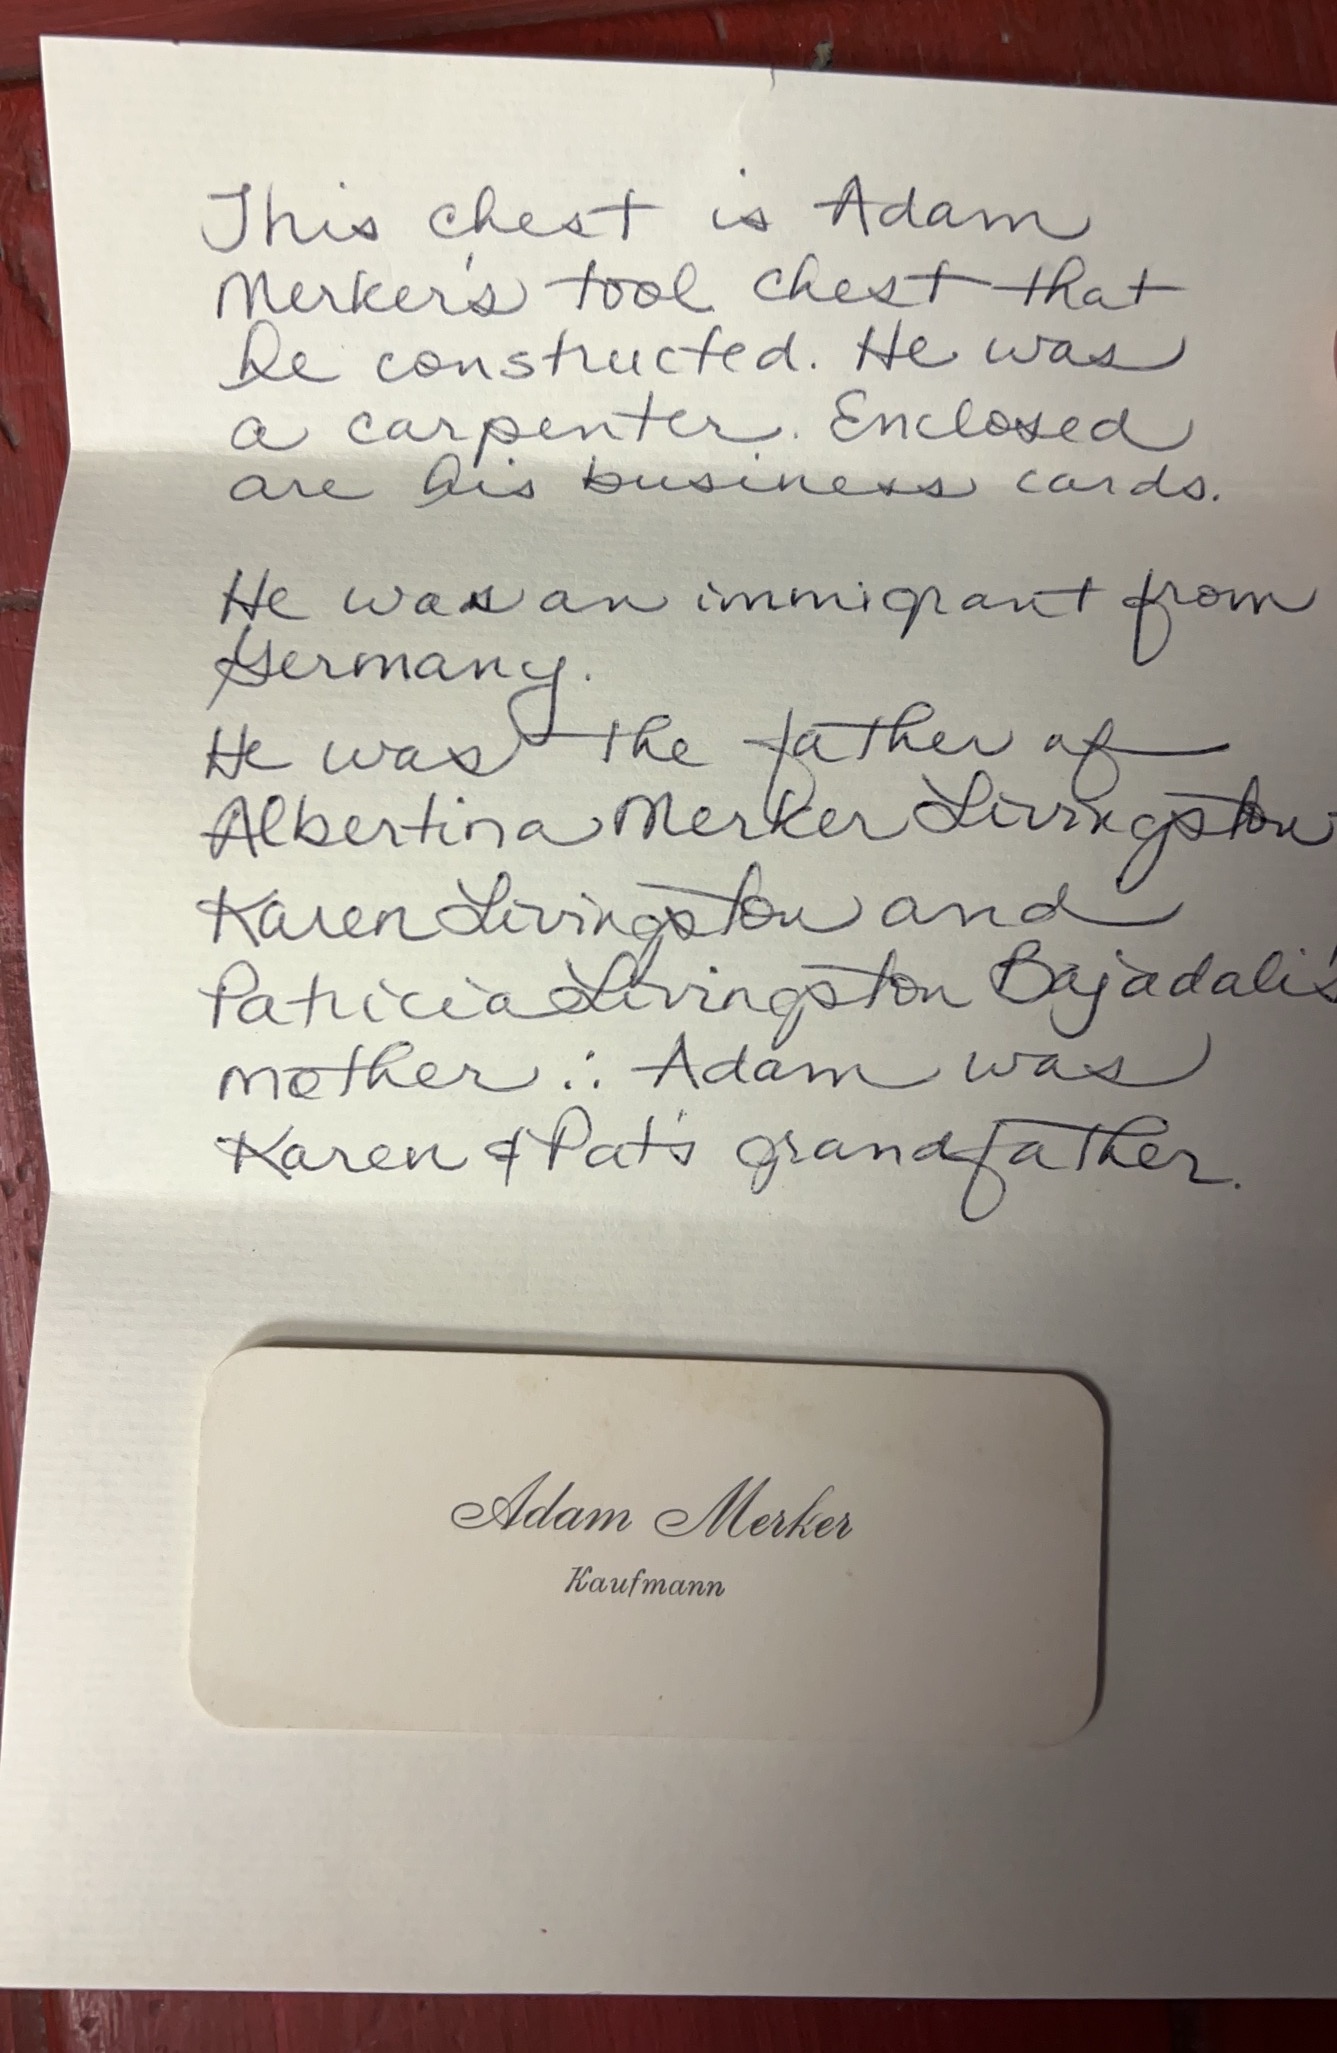 This chest is Adam
Merker's tool chest that
he constructed. He was
a carpenter. Enclosed
are his business cards.
He was an immigrant from
Germany.
He was the father of
Albertina Merker Livingston
Karen Livingston and
Patricia Livingston Bajadali's
mother ∴ Adam was
Karen & Pat's grandfather.
Adam Merker
Kaufmann